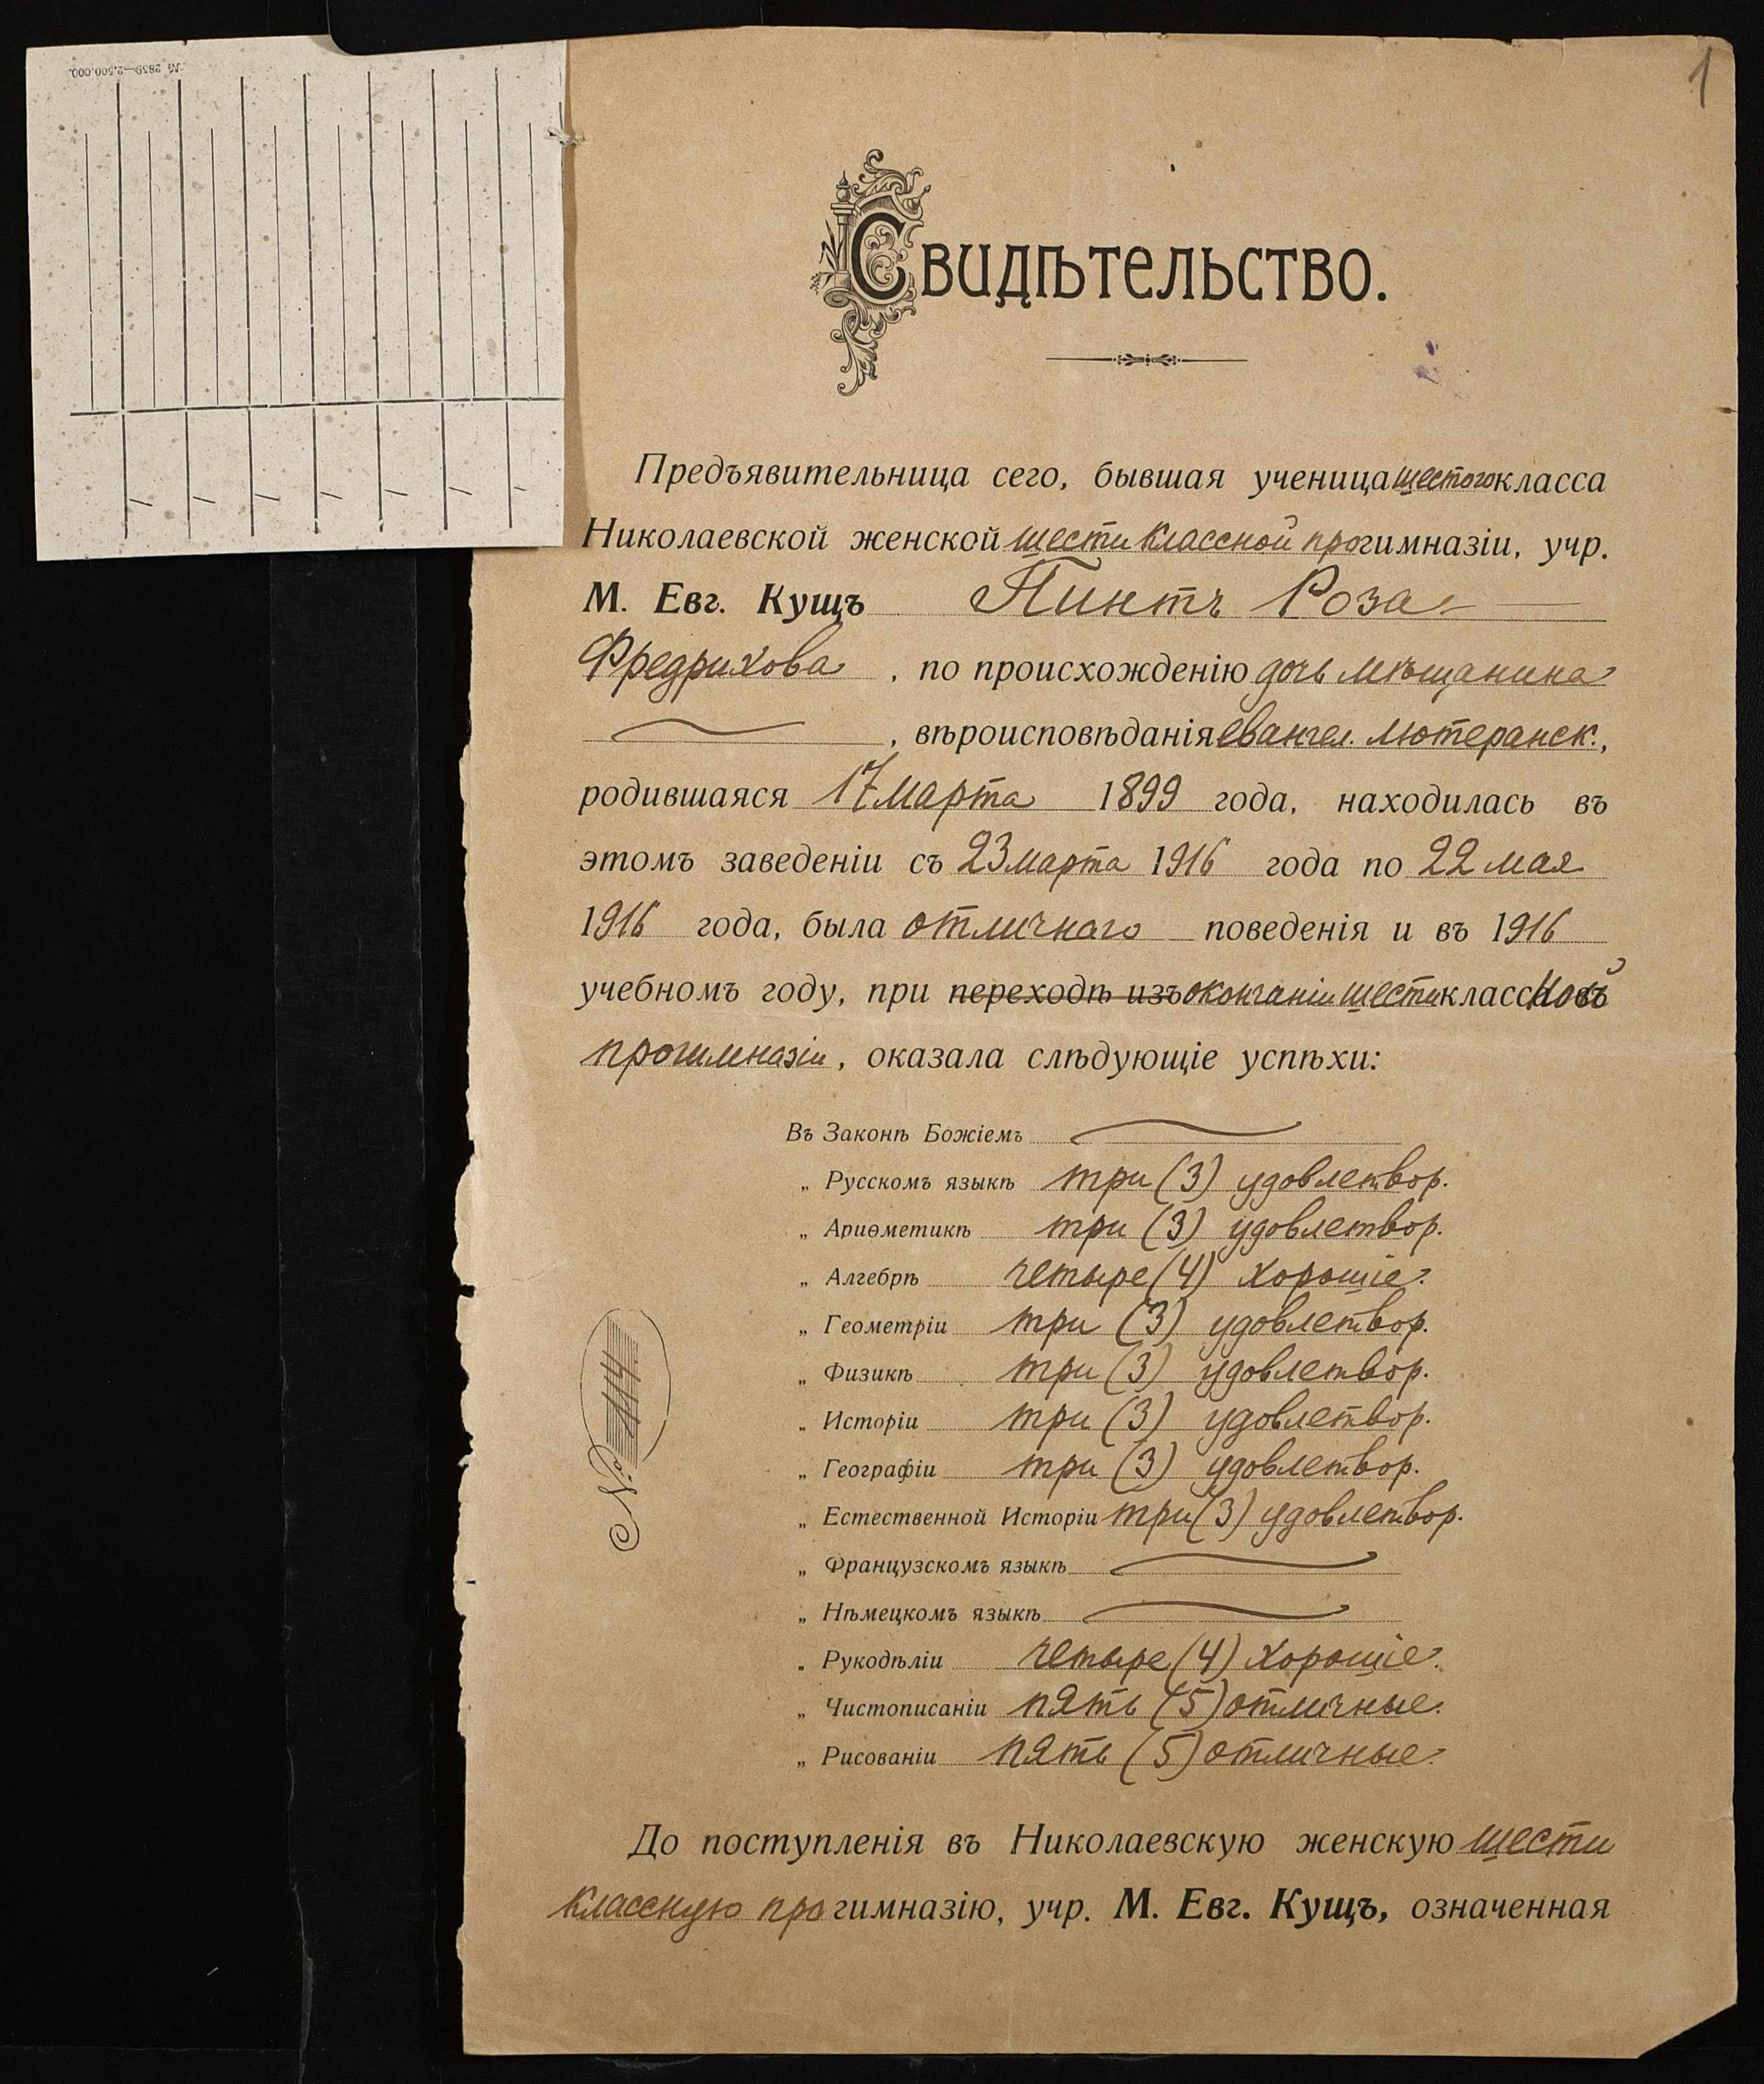 № 2859—2.500.000.
1
Свидѣтельство.
Предъявительница сего, бывшая ученица шестого класса
Николаевской женской шести классной прогимназіи, учр.
М. Евг. Кущъ Пинтъ Роза
Фредрихова, по происхожденію дочь мѣщанина
, вѣроисповѣданія евангел. лютеранск.,
родившаяся 17 марта 1899 года, находилась въ
этомъ заведеніи съ 23 марта 1916 года по 22 мая
1916 года, была отличнаго поведенія и въ 1916
учебномъ году, при переходѣ изъ окончаніи шестиклассной
прогимназіи, оказала слѣдующіе успѣхи:
Въ Законѣ Божіемъ
„ Русскомъ языкѣ три (3) удовлетвор.
„ Ариѳметикѣ три (3) удовлетвор.
„ Алгебрѣ четыре (4) хорошіе.
„ Геометріи три (3) удовлетвор.
„ Физикѣ три (3) удовлетвор.
„ Исторіи три (3) удовлетвор.
„ Географіи три (3) удовлетвор.
„ Естественной Исторіи три (3) удовлетвор.
„ Французскомъ языкѣ
„ Нѣмецкомъ языкѣ
„ Рукодѣліи четыре (4) хорошіе.
„ Чистописаніи пять (5) отличные.
„ Рисованіи пять (5) отличные.
№ 114
До поступленія въ Николаевскую женскую шести
классную прогимназію, учр. М. Евг. Кущъ, означенная